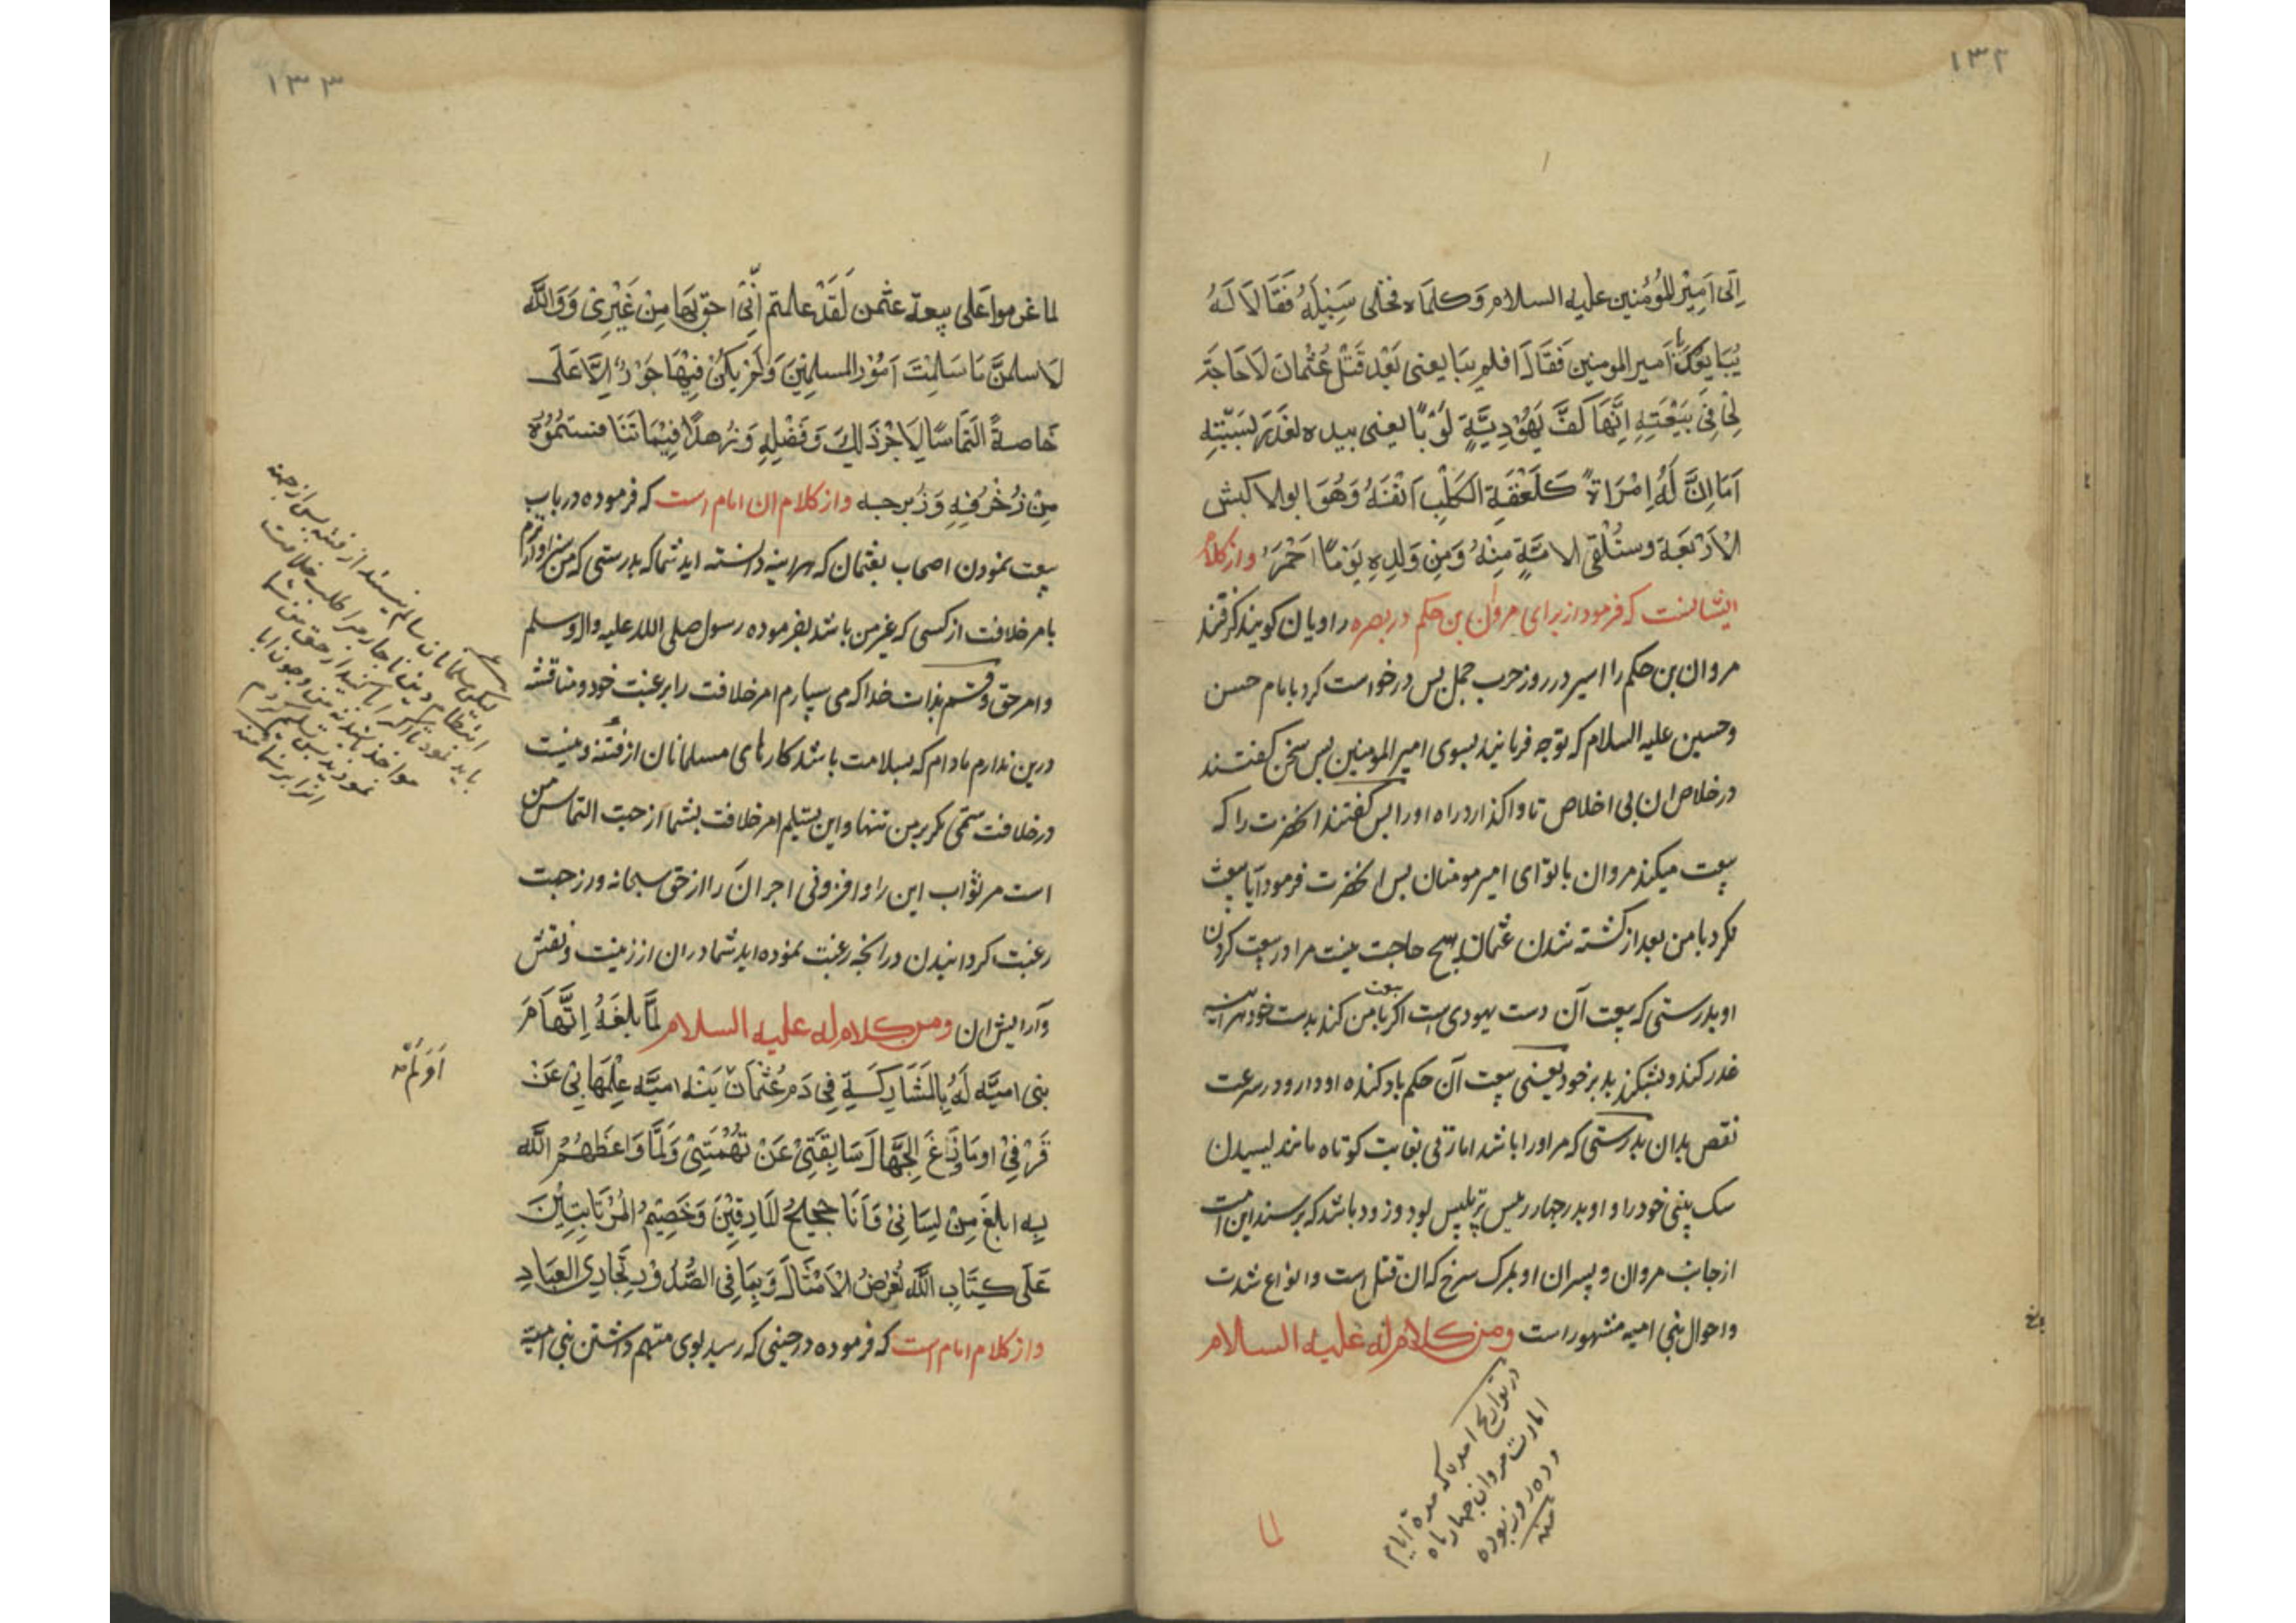 ۱۳۲
اِلٰی اَمِیْرِ الْمُؤْمِنین علیه السلام وَکلماه فخلی سَبِیْلَهُ فَقَالَا لَهُ
یُبَایِعُکَ یا اَمیر المومنین فَقَالَ افلم یبَایعنی بَعْدَ قَتْلِ عُثْمَانَ لَا حَاجَةَ
لِیْ فِیْ بَیْعَتِهِ اِنَّهَا کَفٌّ یَهُوْدِیَّةٍ لَوْ بَایعنی بیده لغَدَرَ بِسَبَّتِهِ
اَمَا اِنَّ لَهُ اِمْرَاةً کَلَعْقَةِ الکَلْبِ اَنْفَهُ وَهُوَ ابو الاکبش
الْاَرْبَعَة وستُلْقی الامّةٍ مِنْهُ وَمِنْ وَلدِهِ یَوْمًا اَحْمَرَ وازکلام
ایشانست که فرمود از برای مروان بن حکم در بصره راویان کویند کرفتند
مروان بن حکم را اسیر در روز حرب جمل پس درخواست کرد بامام حسن
وحسین علیه السلام که توجه فرمانید بسوی امیر المومنین پس سخن کفتند
در خلاص ان بی اخلاص تا واکذارد راه او را پس کفتند انحضرت را که
بیعت میکند مروان با تو ای امیر مومنان پس انحضرت فرمود آیا بیعت
نکرد با من بعد از کشته شدن عثمان هیچ حاجت نیست مرا در بیعت کردن
او بدرستی که بیعت آن دست یهودی است اکر بیعت با من کند بدست خود هراینه
غدر کند و بشکند بدبر خود یعنی بیعت آن حکم باد کنده او دارد در سرعت
نقص بدان بدرستی که مر او را باشد امارتی بغایت کوتاه مانند لیسیدن
سک بینی خود را و او پدر چهار رئیس پرتلبیس بود و زود باشد که برسند این امت
از جانب مروان و پسران او بمرک سرخ که ان قتل است وانواع شدت
واحوال بنی امیه مشهور است ومن کلام له علیه السلام
در تواریخ امده که مدة ایام
امارت مروان چهار ماه
و ده روز بوده
منه
لما
۱۳۳
لما غرموا عَلی بیعة عثمن لَقَدْ علمتم اَنِّیْ احق بِهَا مِنْ غَیْرِیْ وَوَاللّٰه
لَاسلمنَّ مَا سَلِمَتْ اُمُوْرُ المسلِمِیْنَ وَلَمْ یَکُنْ فِیْهَا جَوْرٌ اِلَّا عَلَی
خَاصةً الْتِمَاسًا لِاَجْرِ ذَالِکَ وَفَضْلِهِ وَزُهدًا فِیْمَا تَنَافستمُوْهُ
مِنْ زُخْرُفِهِ وَزُبرجه وازکلام ان امام است که فرموده در باب
بیعت نمودن اصحاب بعثمان که هراینه دانسته اید شما که بدرستی که من سزاوارترم
بامر خلافت از کسی که غیر من باشد بفرموده رسول صلی الله علیه واله وسلم
وامر حق وقسم بذات خدا که می سپارم امر خلافت را برغبت خود ومناقشه
درین ندارم مادام که بسلامت باشد کارهای مسلمانان از فتنه ونیست
در خلافت ستمی مکر بر من تنها و این تسلیم امر خلافت بشما از جهت التماس من
است مر ثواب این را وافزونی اجر آن را از حق سبحانه و از جهت
رغبت کردانیدن در انچه رغبت نموده اید شما در ان از زینت ونقش
وآرایش ان ومن کلام له علیه السلام لَمَّا بلغَهُ اِتِّهَامَ
بنی امیَّه لَهُ بِالمَشَارِکَةِ فِی دَمِ عُثْمَانَ یَنْه امیَّه عِلْمَهَا بِیْ عَنْ
قَرْفِیْ او مَا وَزَعَ الجُهَّالَ سَابِقَتِیْ عَنْ تُهْمَتِیْ وَلَمَا وَاعَظَهُمُ اللّٰه
بِه ابلغ مِنْ لِسَانِیْ فَاَنَا حجیجُ المَارِقِیْنَ وَخَصِیْمُ المُرْتَابِیْنَ
عَلَی کِتَابِ اللّٰه تُعْرَضُ الْاَمْثَالُ وَبِمَا فِی الصُّدُوْرِ تُجَازَی العِبَادِ
وازکلام امام است که فرموده در حینی که رسید بوی متهم داشتن بنی امیه
اَوَلَمْ